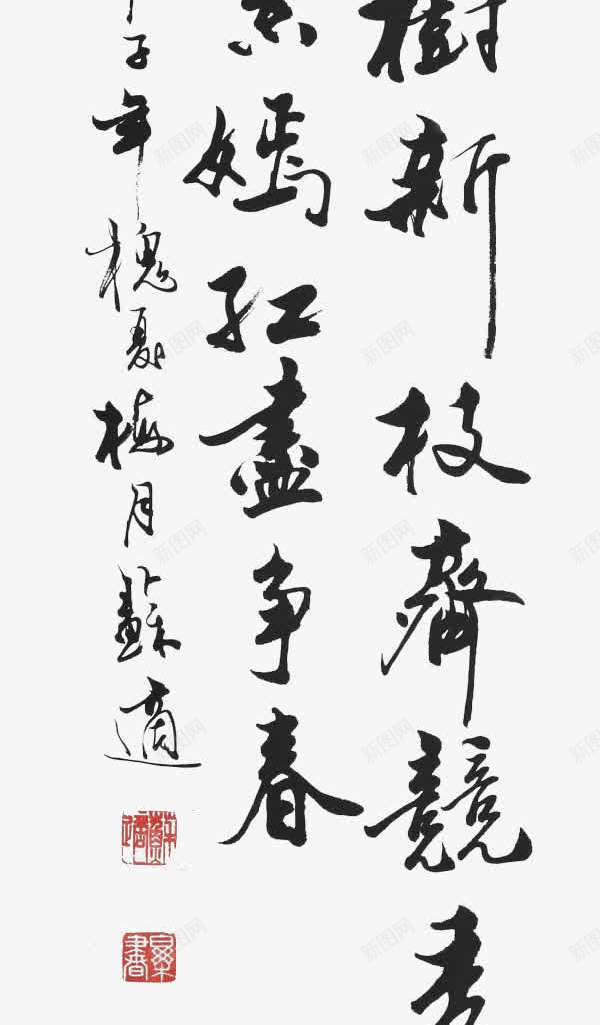 樹新枝齊競秀
嫣紅盡爭春
子年槐夏梅月蘇適
新图网